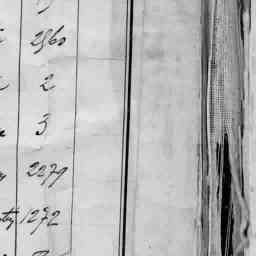 2560
2
3
2279
ty 1272